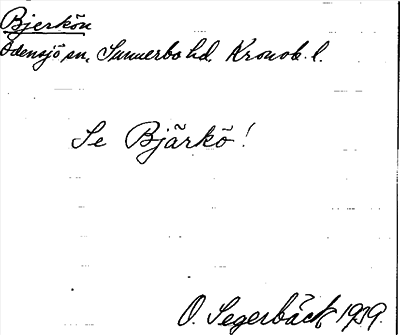 Bjerkön
Odensjö sn, Sunnerbo hd. Kronob. l.
Se Bjärkö!
O. Segerbäck 1919.